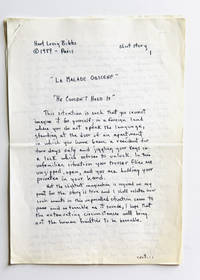 Hart Leroy Bibbs short story
© 1989 - Paris 1
"La Malade Obscene"
"He Couldn't Hold It"
This situation is such that you cannot
imagine it for yourself; in a foreign land
where you do not speak the language,
standing at the door of an apartment
in which you have been a resident for
two days only and jiggling your keys in
a lock which refuses to unlock. In this
unfamiliar situation your trouser flies are
unzipped, open, and you are holding your
privates in your hand.
At the slightest imagination is injured on my
part for this story is true and I shall relate how
such events in this imperiled situation came to
pass and as terrible as it sounds, I hope that
the extenuating circumstances will bring
out the human frailties to be bearable.
cont...